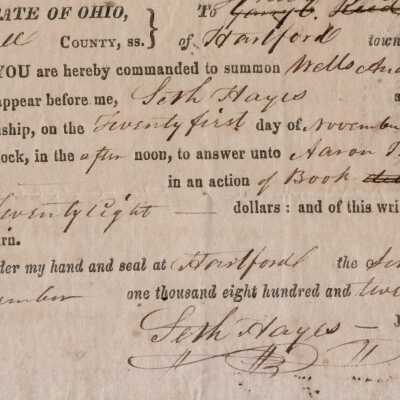 ATE OF OHIO, } To
ll COUNTY, ss. of Hartford town
YOU are hereby commanded to summon Wells
appear before me, Seth Hayes
ship, on the Twenty first day of Novembe
ock, in the after noon, to answer unto Aaron
in an action of Book
Seventy eight dollars : and of this wri
rn.
der my hand and seal at Hartford the
ember one thousand eight hundred and twe
Seth Hayes — J